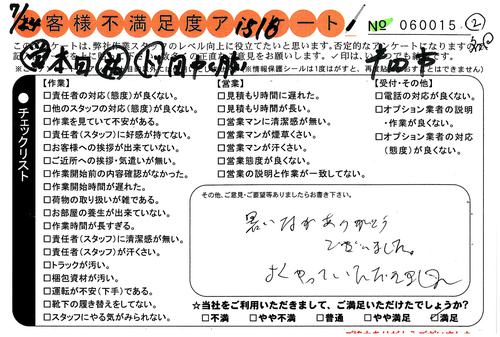 7/24 お客様不満足度アンケート!
1518
№ 060015
②
このアンケートは、弊社作業スタッフのレベル向上に役立てたいと思います。否定的なアンケートになりますので
※情報保護シールは1度はがすと、再度貼
はできません)
チェックリスト
【作業】
□責任者の対応(態度)が良くない。
□他のスタッフの対応(態度)が良くない。
□作業を見ていて不安がある。
□責任者(スタッフ)に好感が持てない。
□お客様への挨拶が出来ていない。
□ご近所への挨拶・気遣いが無い。
□作業開始前の内容確認がなかった。
□作業開始時間が遅れた。
□荷物の取り扱いが雑である。
□お部屋の養生が出来ていない。
□作業時間が長すぎる。
□責任者(スタッフ)に清潔感が無い。
□責任者(スタッフ)が汗くさい。
□トラックが汚い。
□梱包資材が汚い。
□運転が不安(下手)である。
□靴下の履き替えをしてない。
□スタッフにやる気がみられない。
【営業】
□見積もり時間に遅れた。
□見積もり時間が長い。
□営業マンに清潔感が無い。
□営業マンが煙草くさい。
□営業マンが汗くさい。
□営業態度が良くない。
□営業の説明と作業が一致してない。
【受付・その他】
□電話の対応が良くない。
□オプション業者の説明・作業が良くない。
□オプション業者の対応(態度)が良くない。
その他、ご意見・ご要望等ありましたらお書き下さい。
暑い中ありがとう
ございました。
よくやっていただきました
☆当社をご利用いただきまして、ご満足いただけたでしょうか?
□不満 □やや不満 □普通 □やや満足 ☑満足